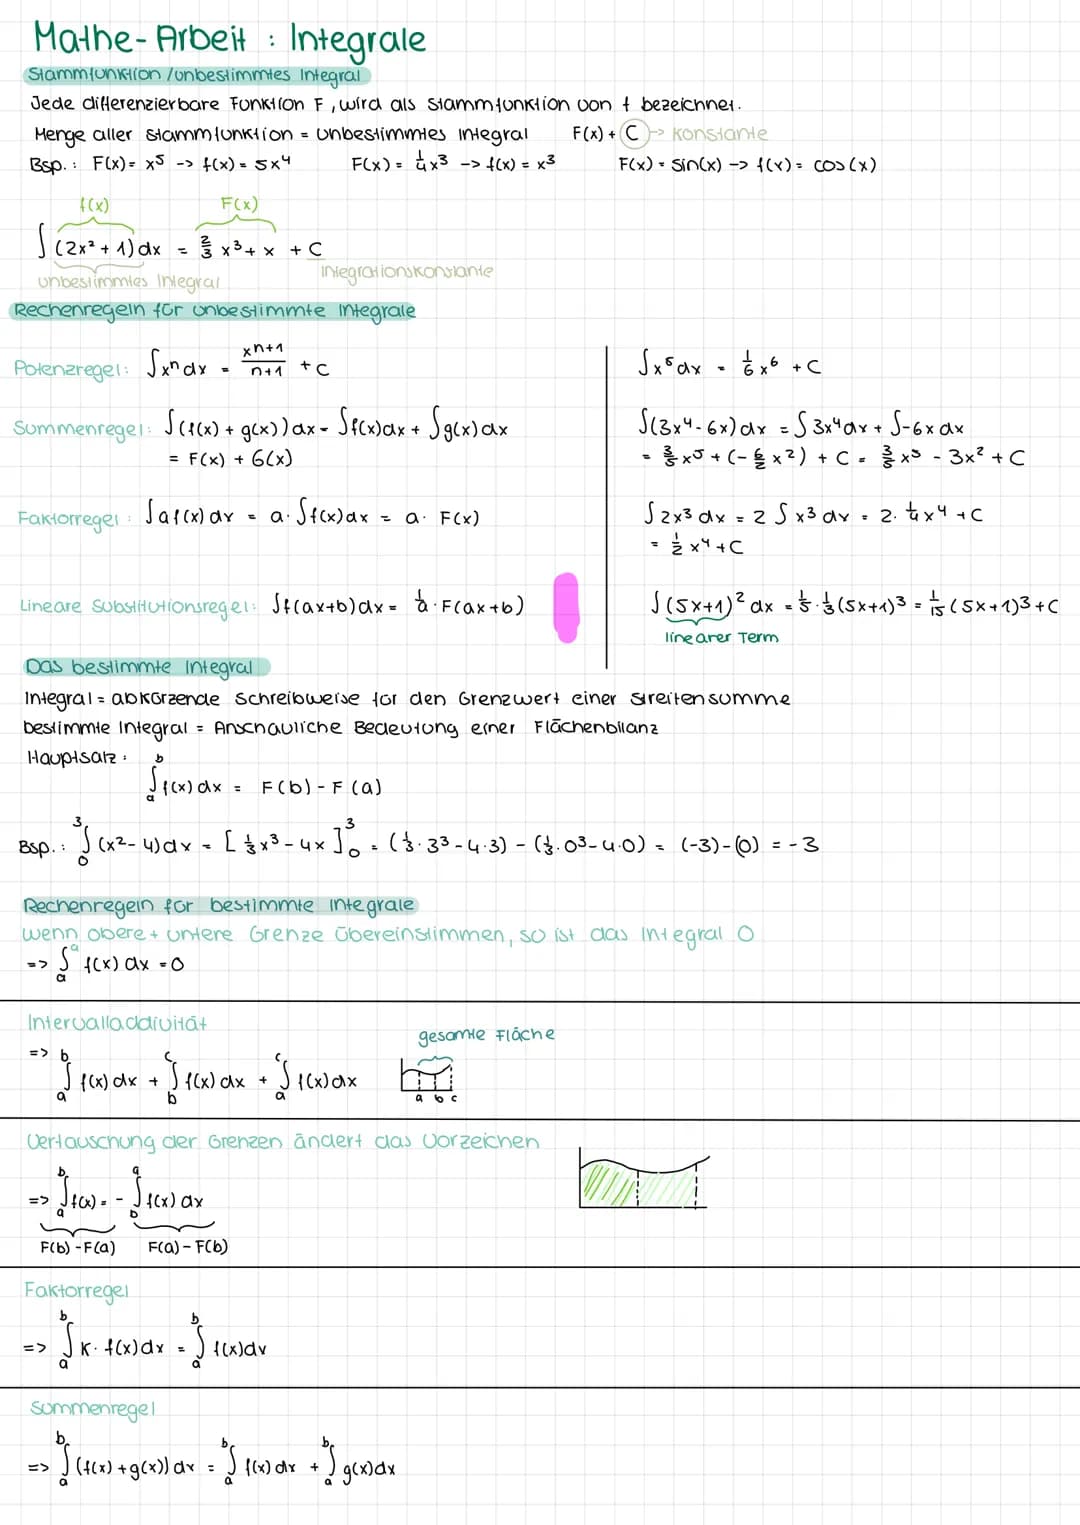 Mathe-Arbeit : Integrale
Stammfunktion / unbestimmtes Integral
Jede differenzierbare Funktion F, wird als Stammfunktion von f bezeichnet.
Menge aller Stammfunktion = Unbestimmtes Integral F(x) + C -> Konstante
Bsp.: F(x) = x⁵ -> f(x) = 5x⁴ F(x) = 1/4 x³ -> f(x) = x³ F(x) = sin(x) -> f(x) = cos(x)
f(x) F(x)
∫(2x² + 1)dx = 2/3 x³ + x + C
unbestimmtes Integral Integrationskonstante
Rechenregeln für unbestimmte Integrale
Potenzregel: ∫xⁿdx = xⁿ⁺¹/n+1 + C ∫x⁵dx = 1/6 x⁶ + C
Summenregel: ∫(f(x) + g(x))dx = ∫f(x)dx + ∫g(x)dx ∫(3x⁴-6x)dx = ∫3x⁴dx + ∫-6x dx
= F(x) + G(x) = 3/5 x⁵ + (-6/2 x²) + C = 3/5 x⁵ - 3x² + C
Faktorregel: ∫af(x)dx = a·∫f(x)dx = a· F(x) ∫2x³ dx = 2 ∫x³ dx = 2· 1/4 x⁴ + C
= 1/2 x⁴ + C
Lineare Substitutionsregel: ∫f(ax+b)dx = 1/a · F(ax+b) ∫(5x+1)² dx = 1/5 · 1/3 (5x+1)³ = 1/15 (5x+1)³ + C
linearer Term
Das bestimmte Integral
Integral = abkürzende Schreibweise für den Grenzwert einer Streifensumme
bestimmte Integral = Anschauliche Bedeutung einer Flächenbilanz
Hauptsatz:
∫ₐᵇ f(x) dx = F(b) - F(a)
Bsp.: ∫₀³ (x²-4)dx = [1/3 x³ - 4x]₀³ = (1/3 · 3³ - 4·3) - (1/3 · 0³ - 4·0) = (-3)-(0) = -3
Rechenregeln für bestimmte Integrale
wenn obere + untere Grenze übereinstimmen, so ist das Integral 0
=> ∫ₐᵃ f(x) dx = 0
Intervalladdivität
gesamte Fläche
=> ∫ₐᵇ f(x) dx + ∫_b^c f(x) dx + ∫_a^c f(x)dx
a b c
Vertauschung der Grenzen ändert das Vorzeichen
=> ∫ₐᵇ f(x) = - ∫_b^a f(x) dx
F(b) - F(a) F(a) - F(b)
Faktorregel
=> ∫ₐᵇ K· f(x)dx = ∫ₐᵇ f(x)dx
Summenregel
=> ∫ₐᵇ (f(x) + g(x)) dx = ∫ₐᵇ f(x) dx + ∫ₐᵇ g(x)dx